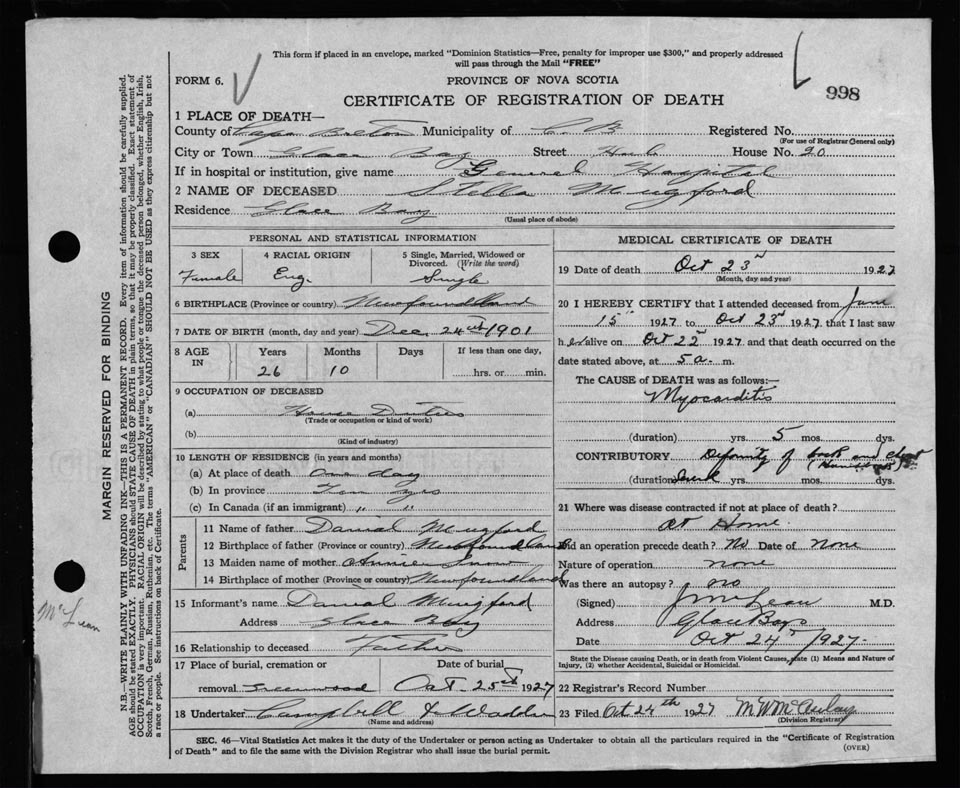 This form if placed in an envelope, marked "Dominion Statistics—Free, penalty for improper use $300," and properly addressed
will pass through the Mail "FREE"
FORM 6.
PROVINCE OF NOVA SCOTIA
CERTIFICATE OF REGISTRATION OF DEATH
998
1 PLACE OF DEATH—
County of Cape Breton Municipality of C. B Registered No.
(For use of Registrar General only)
City or Town Glace Bay Street Hub House No. 20
If in hospital or institution, give name General Hospital
2 NAME OF DECEASED Stella Mugford
Residence Glace Bay
(Usual place of abode)
PERSONAL AND STATISTICAL INFORMATION
3 SEX 4 RACIAL ORIGIN 5 Single, Married, Widowed or
Divorced. (Write the word)
Female Eng Single
6 BIRTHPLACE (Province or country) Newfoundland
7 DATE OF BIRTH (month, day and year) Dec. 24th 1901
8 AGE IN Years Months Days If less than one day,
26 10 hrs. or min.
9 OCCUPATION OF DECEASED
(a) House Duties
(Trade or occupation or kind of work)
(b)
(Kind of industry)
10 LENGTH OF RESIDENCE (in years and months)
(a) At place of death One day
(b) In province Ten yrs
(c) In Canada (if an immigrant) " "
Parents
11 Name of father Danial Mugford
12 Birthplace of father (Province or country) Newfoundland
13 Maiden name of mother Annie Snow
14 Birthplace of mother (Province or country) Newfoundland
15 Informant's name Danial Mugford
Address Glace Bay
16 Relationship to deceased Father
17 Place of burial, cremation or Date of burial
removal Greenwood Oct. 25th 1927
18 Undertaker Campbell & Wadden
(Name and address)
MEDICAL CERTIFICATE OF DEATH
19 Date of death Oct 23rd 1927
(Month, day and year)
20 I HEREBY CERTIFY that I attended deceased from June
15th 1927 to Oct 23rd 1927 that I last saw
h er alive on Oct 22nd 1927 and that death occurred on the
date stated above, at 5 a. m.
The CAUSE of DEATH was as follows:—
Myocarditis
(duration) yrs. 5 mos. dys.
CONTRIBUTORY Deformity of back and chest
(duration) yrs. mos. dys.
21 Where was disease contracted if not at place of death?
At Home.
Did an operation precede death? No Date of None
Nature of operation None
Was there an autopsy? No
(Signed) J McLean M.D.
Address Glace Bay
Date Oct 24th 1927
State the Disease causing Death, or in death from Violent Causes, state (1) Means and Nature of
Injury, (2) whether Accidental, Suicidal or Homicidal.
22 Registrar's Record Number
23 Filed Oct 24th 1927 M W McAulay
(Division Registrar)
SEC. 46—Vital Statistics Act makes it the duty of the Undertaker or person acting as Undertaker to obtain all the particulars required in the "Certificate of Registration
of Death" and to file the same with the Division Registrar who shall issue the burial permit.
(OVER)
MARGIN RESERVED FOR BINDING
N.B.—WRITE PLAINLY WITH UNFADING INK—THIS IS A PERMANENT RECORD. Every item of information should be carefully supplied.
AGE should be stated EXACTLY. PHYSICIANS should STATE CAUSE OF DEATH in plain terms, so that it may be properly classified. Exact statement of
OCCUPATION is very important. RACIAL ORIGIN will be described by stating to what people or tongue the deceased person belonged, whether English, Irish,
Scotch, French, German, Russian, Ruthenian, etc. The terms "AMERICAN" or "CANADIAN" SHOULD NOT BE USED as they express citizenship but not
a race or people. See instructions on back of Certificate.
McLean